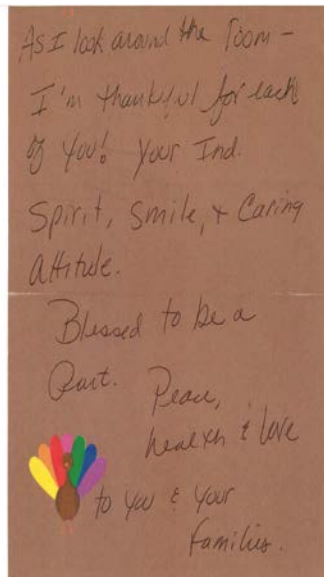 As I look around the room -
I'm thankful for each
of you! Your Ind.
Spirit, Smile, + Caring
Attitude.
Blessed to be a
Part. Peace,
health & love
to you & your
families.